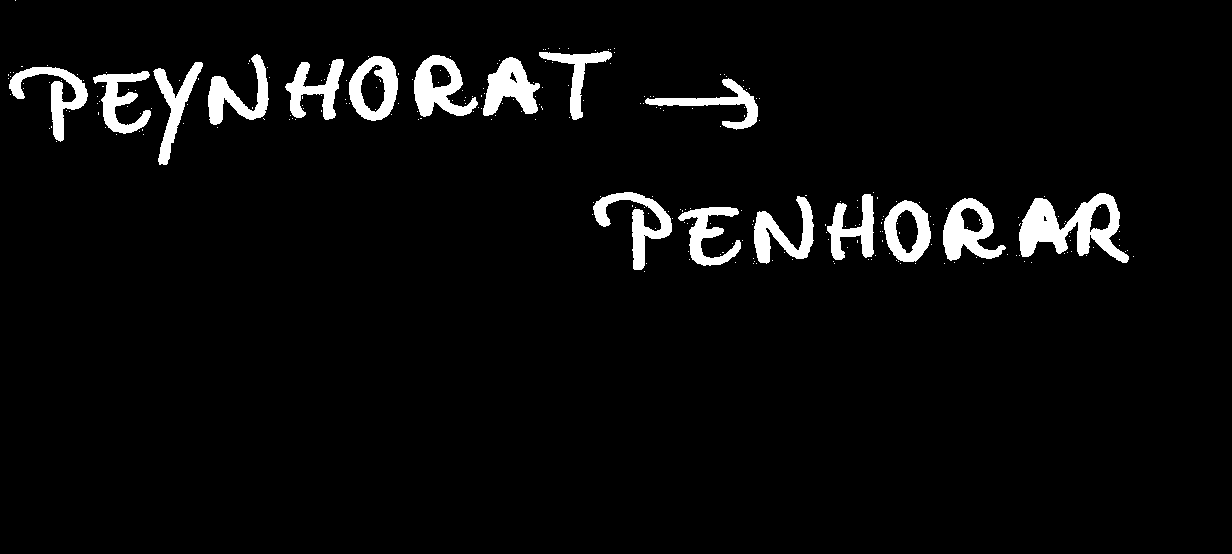 PEYNHORAT →
PENHORAR